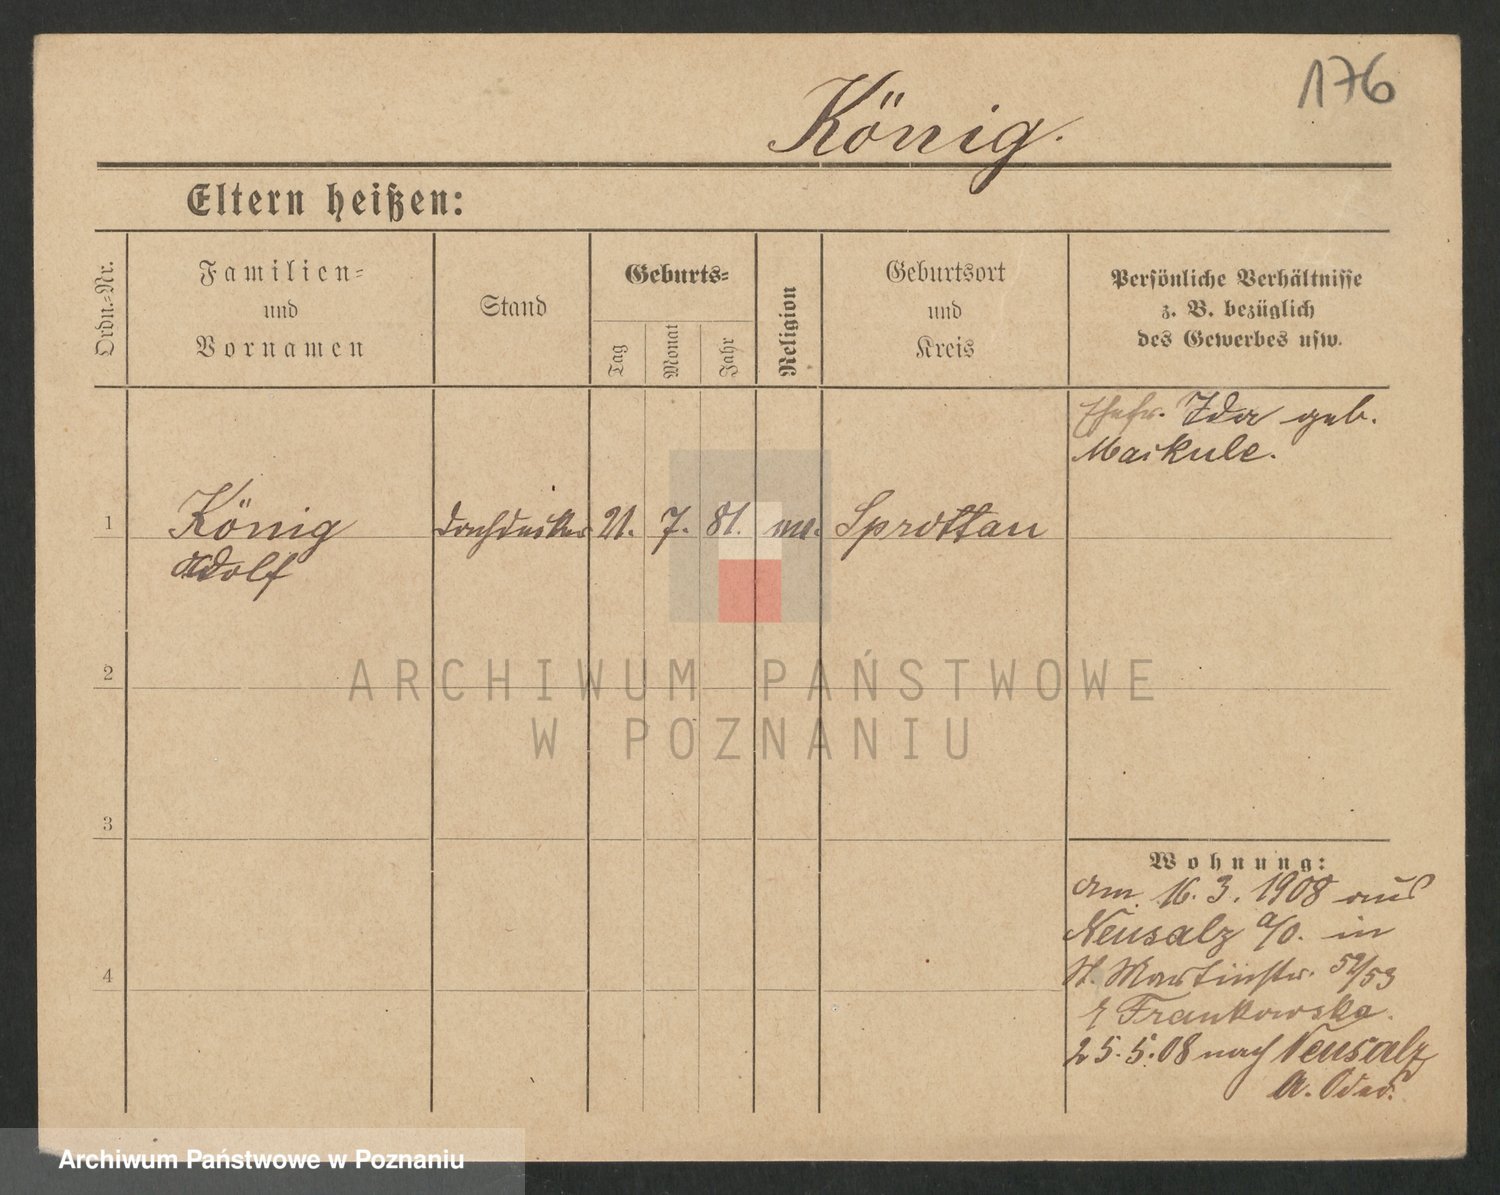 176
König.
Eltern heißen:
Ordn.-Nr.
Familien-
und
Vornamen
Stand
Geburts-
Tag
Monat
Jahr
Religion
Geburtsort
und
Kreis
Persönliche Verhältnisse
z. B. bezüglich
des Gewerbes usw.
Ehefr. Ida geb.
Maikule.
1
König
Adolf
Dachdecker
21.
7.
81.
Sprottau
2
ARCHIWUM PAŃSTWOWE
W POZNANIU
3
Wohnung:
am 16. 3. 1908 aus
Neusalz a/O. in
St. Martinstr. 52/53
Frankowska.
25. 5. 08 nach Neusalz
a. Oder.
4
Archiwum Państwowe w Poznaniu